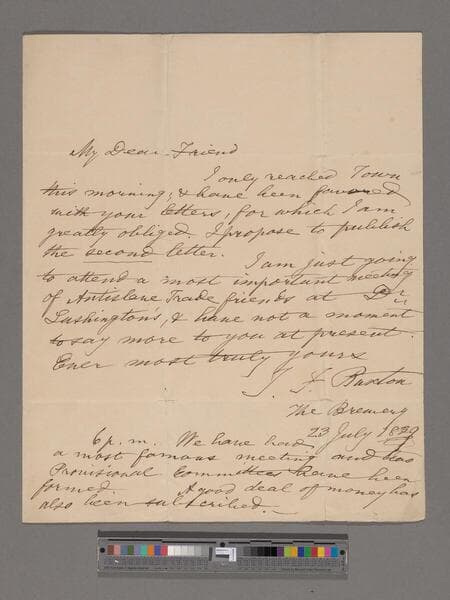 My Dear Friend
I only reached Town
this morning; & have been favored
with your letters, for which I am
greatly obliged. I propose to publish
the second letter.
I am just going
to attend a most important meeting
of Antislave Trade friends at Dr
Lushingtons, & have not a moment
to say more to you at present.
Ever most truly yours
T. F. Buxton
The Brewery
23 July 1839
6 p.m. We have had
a most famous meeting and two
Provisional Committees have been
formed. A good deal of money has
also been subscribed.